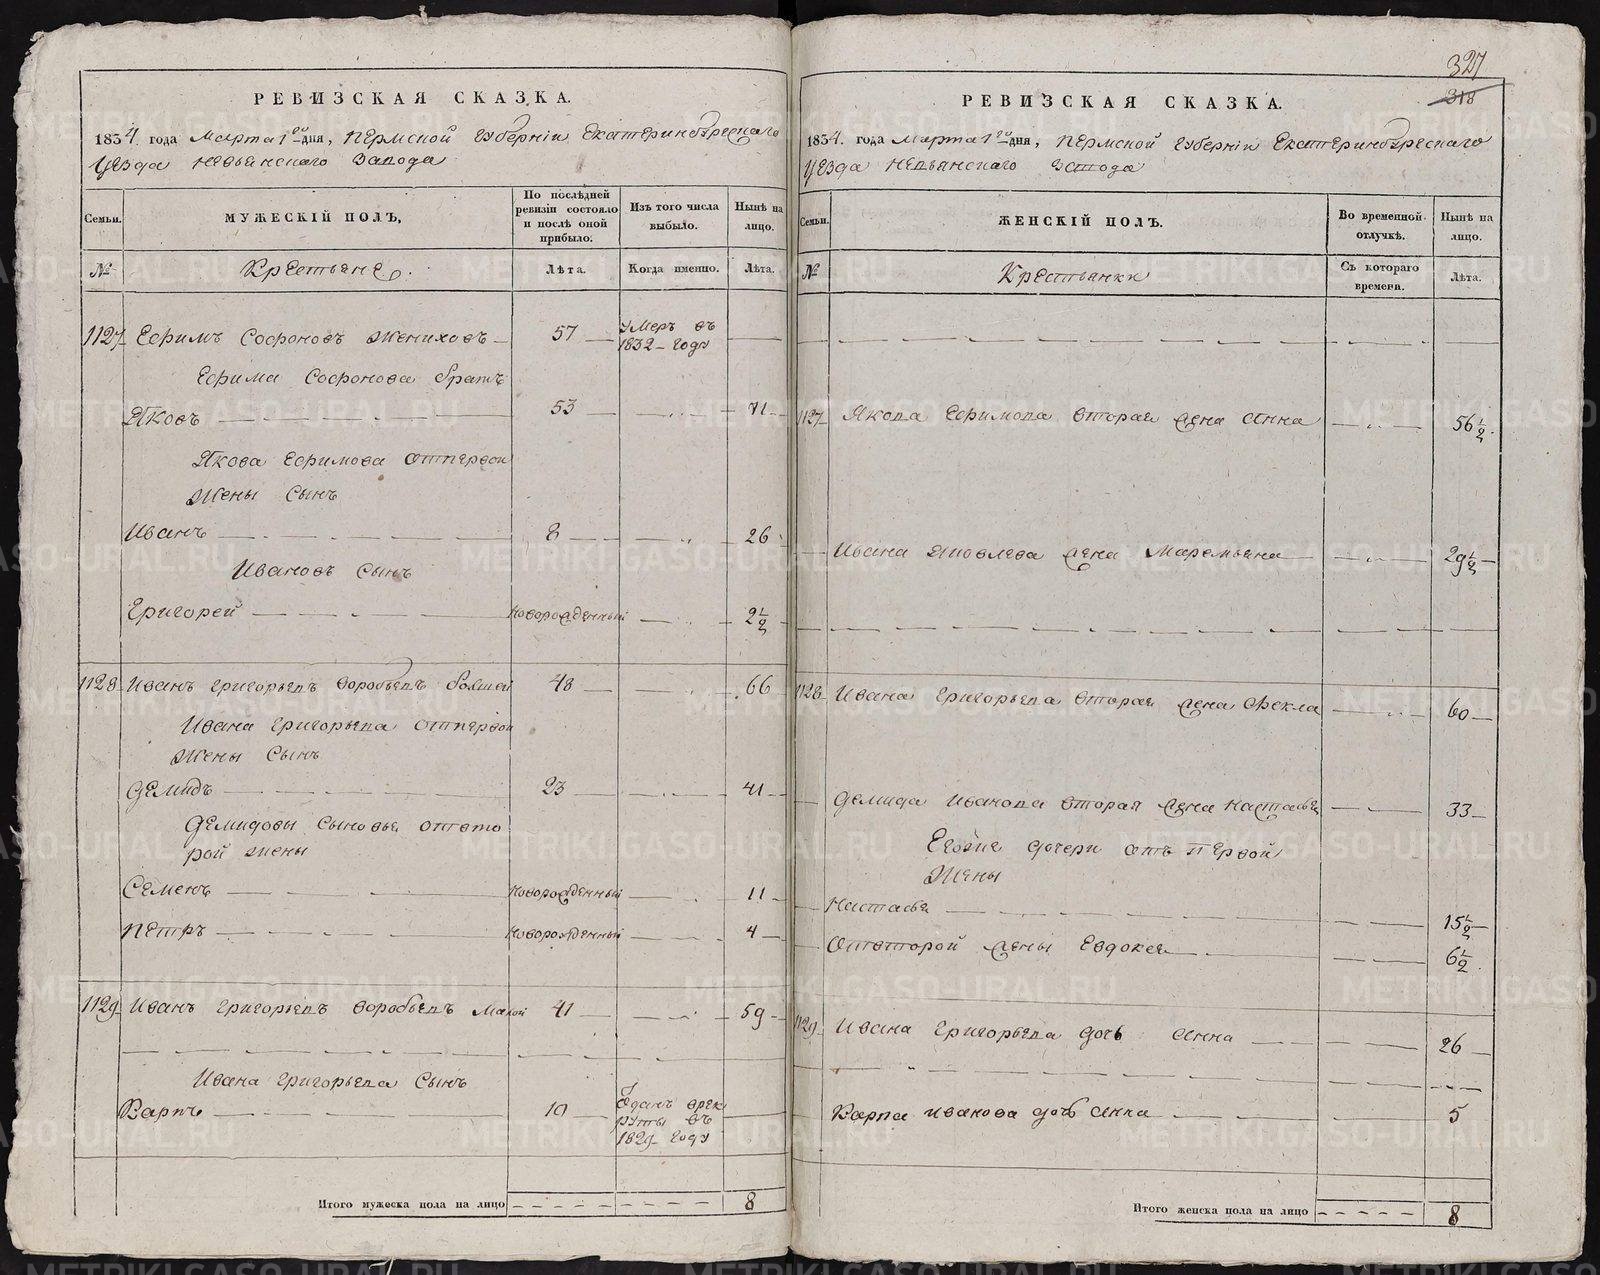 РЕВИЗСКАЯ СКАЗКА.
1834. года Марта 1го дня, Пермской Губернiи Екатеринбургскаго
Уезда Невьянскаго Завода
Семьи.
МУЖЕСКIЙ ПОЛЪ,
По послѣдней ревизiи состояло и послѣ оной прибыло.
Изъ того числа выбыло.
Нынѣ на лицо.
№
Крестьяне.
Лѣта.
Когда именно.
Лѣта.
1127 Ефимъ Софоновъ Жениховъ 57 умеръ въ 1832 году
Ефима Софонова братъ
Яковъ 53 71
Якова Ефимова отпервой
жены сынъ
Иванъ 8 26
Ивановъ сынъ
Григорей новорожденный 2½
1128 Иванъ Григорьевъ Воробьевъ большей 48 66
Ивана Григорьева отпервой
жены сынъ
Демидъ 23 41
Демидовы сыновья отвто
рой жены
Семенъ новорожденный 11
Петръ новорожденный 4
1129 Иванъ Григорьевъ Воробьевъ Малой 41 59
Ивана Григорьева сынъ
Карпъ 10 Зданъ врек
руты въ
1829 году
Итого мужеска пола на лицо 8
327
318
РЕВИЗСКАЯ СКАЗКА.
1834. года Марта 1го дня, Пермской Губернiи Екатеринбургскаго
Уезда Невьянскаго Завода
Семьи.
ЖЕНСКIЙ ПОЛЪ.
Во временной отлучкѣ.
Нынѣ на лицо.
№
Крестьянки
Съ котораго времени.
Лѣта.
1127 Якова Ефимова вторая жена Анна 56½
Ивана Яковлева жена Маремьяна 29½
1128 Ивана Григорьева вторая жена Фекла 60
Демида Иванова вторая жена Настасья 33
Еговые дочери отъ первой
жены
Настасья 15½
Отвторой жены Евдокея 6½
1129 Ивана Григорьева дочь Анна 26
Карпа Иванова дочь Анна 5
Итого женска пола на лицо 8
METRIKI.GASO-URAL.RU